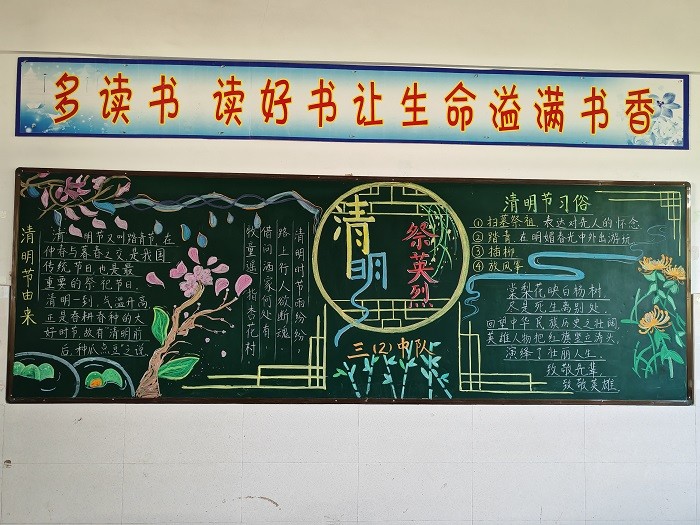 多读书 读好书让生命溢满书香
清明节由来
清明节又叫踏青节,在
仲春与暮春之交,是我国
传统节日也是最
重要的祭祀节日。
清明一到,气温升高,
正是春耕春种的大
好时节,故有清明前
后,种瓜点豆之说。
清明时节雨纷纷,
路上行人欲断魂。
借问酒家何处有
牧童遥指杏花村
清明
祭英烈
三(2)中队
清明节习俗
①扫墓祭祖,表达对先人的怀念
②踏青,在明媚春光中外出游玩
③插柳
④放风筝
棠梨花映白杨树
尽是死生离别处
回望中华民族历史之壮阔
英雄人物把红旗
演绎了壮丽人生,
致敬先辈
致敬英雄